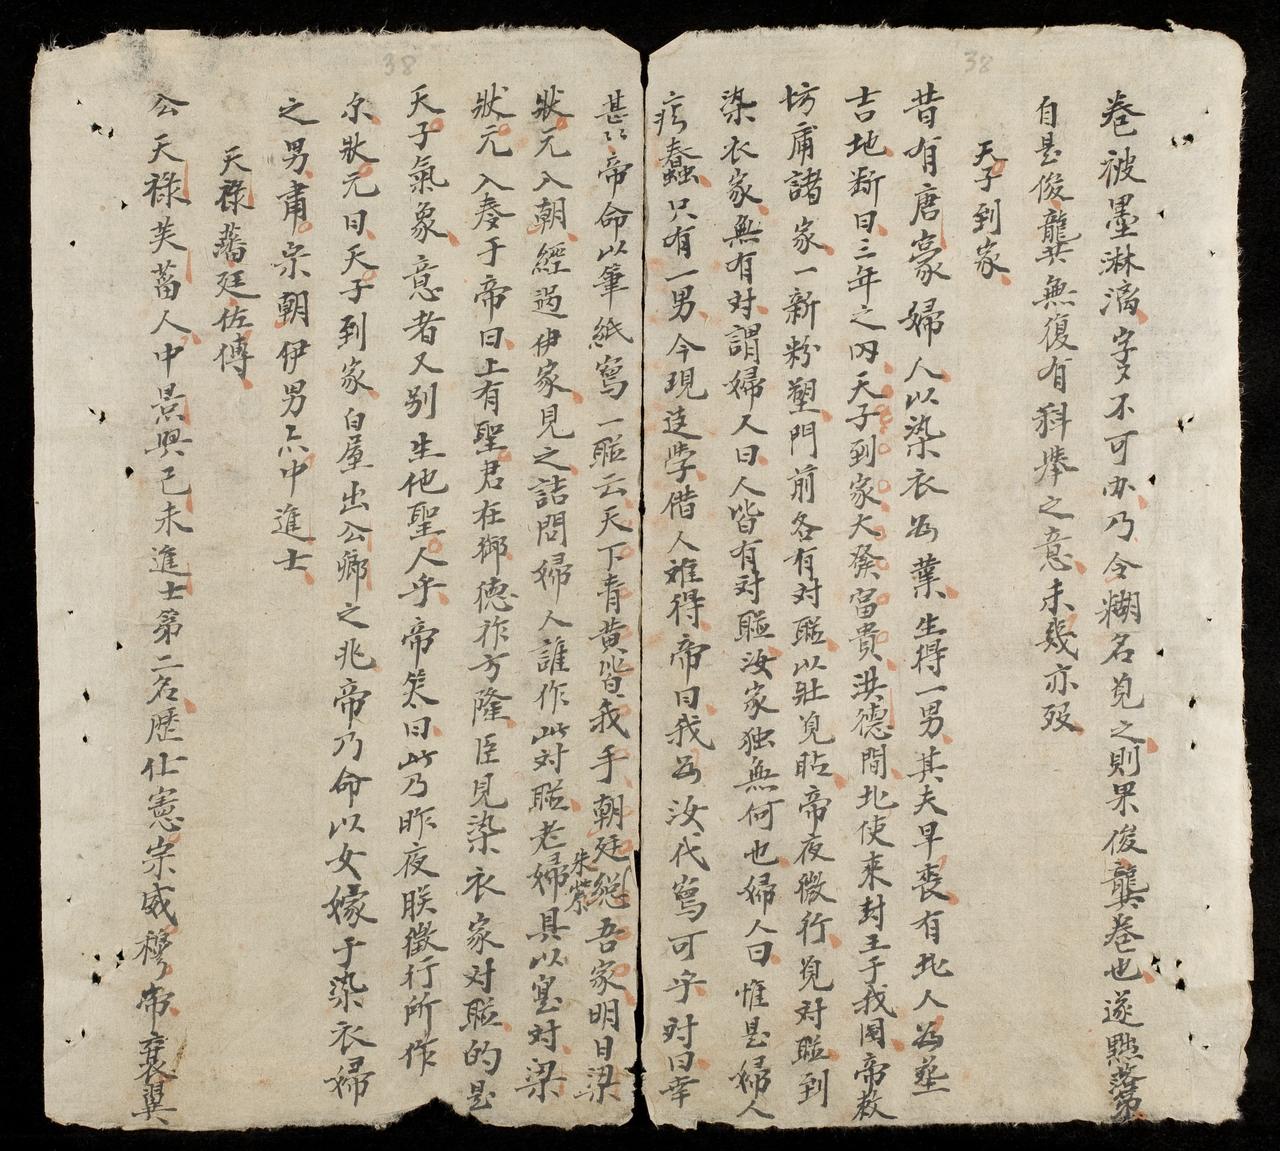 38
38
卷被墨淋漓字多不可办乃令糊名見之則果俊龔卷也遂點落第
自是俊龔無復有科舉之意未幾亦歿
天子到家
昔有唐豪婦人以染衣為業生得一男其夫早喪有北人為塟
吉地断曰三年之内天子到家大發富貴洪德間北使来封王于我國帝敕
坊庯諸家一新粉塑門前各有对聫以壯見眙帝夜微行見对聫到
染衣家無有对謂婦人曰人皆有对聫汝家独無何也婦人曰惟是婦人
痴蠢只有一男今現逹學借人难得帝曰我為汝代寫可乎对曰幸
甚〻帝命以筆紙寫一聫云天下青黄皆我手朝廷朱紫總吾家明日梁
狀元入朝經過伊家見之詰問婦人誰作此对聫老婦具以寔对梁
狀元入奏于帝曰上有聖君在御德祚方隆臣見染衣家对聫的是
天子氣象意者又别生他聖人乎帝笑曰此乃昨夜朕微行所作
尔狀元曰天子到家白屋出公卿之兆帝乃命以女嫁于染衣婦
之男肅宗朝伊男亦中進士
天祿蕃廷佐傳
公天祿芙蒥人中景興己未進士第二名歷仕憲宗威穆帝襄翼